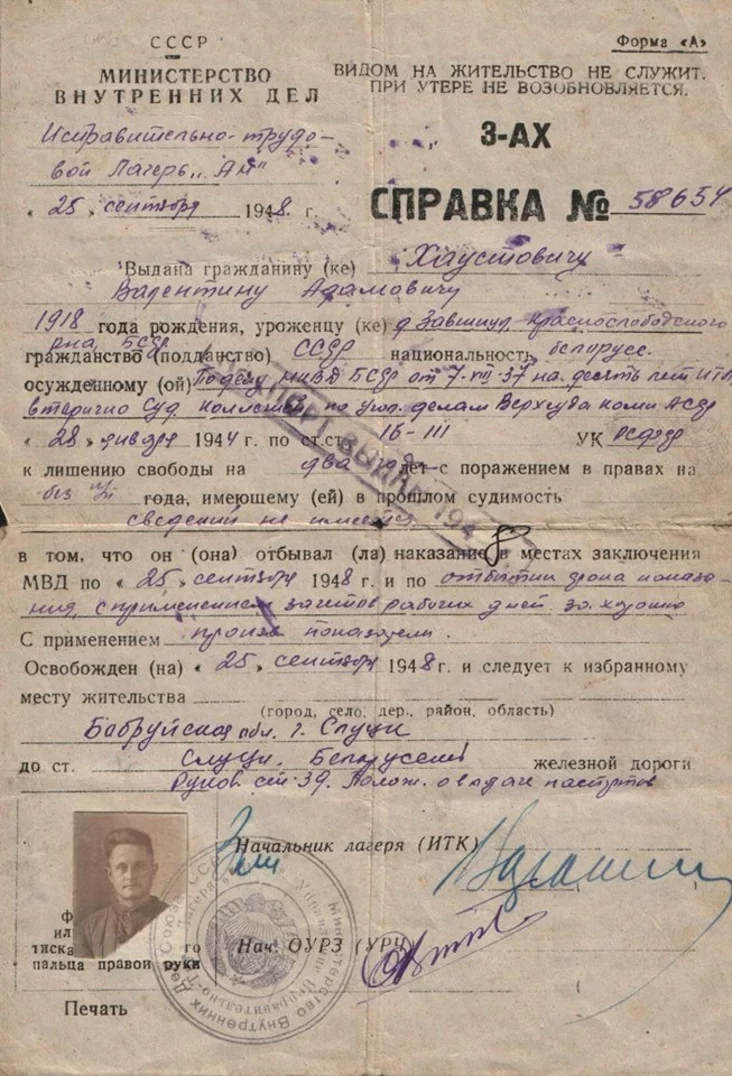 СССР
Форма «А»
МИНИСТЕРСТВО
ВНУТРЕННИХ ДЕЛ
ВИДОМ НА ЖИТЕЛЬСТВО НЕ СЛУЖИТ.
ПРИ УТЕРЕ НЕ ВОЗОБНОВЛЯЕТСЯ.
Исправительно-трудо-
вой Лагерь „АН"
3-АХ
« 25 » сентября 1948. г.
СПРАВКА № 58654
Выдана гражданину (ке) Хаустовичу
Валентину Адамовичу
1918 года рождения, уроженцу (ке) д Краснослободского
рна, БССР
гражданство (подданство) СССР национальность белорусс.
осужденному (ой) НКВД БССР от 7.VIII-37 на десять лет ИТЛ,
вторично Суд. коллегией по угол. делам Верхсуда Коми АССР
« 28 » января 1944 г. по ст.ст 16-III УК РСФСР
к лишению свободы на два года лет с поражением в правах на
без п/п года, имеющему (ей) в прошлом судимость
сведений не имеется.
в том, что он (она) отбывал (ла) наказание в местах заключения
МВД по « 25 » сентября 1948 г. и по отбытии срока наказа-
ния, с применением зачетов рабочих дней за хорошие
С применением произв показатели.
Освобожден (на) « 25 » сентября 1948 г. и следует к избранному
месту жительства
(город, село, дер., район, область)
Бабруйская обл. г. Слуцк
до ст. Слуцк. Белорусской железной дороги
Руков. ст. 39. Полож. о выдаче паспортов
Начальник лагеря (ИТК)
Нач. ОУРЗ (УРЧ)
тиска го
пальца правой руки
Печать
Министерство Внутренних Дел Союза ССР